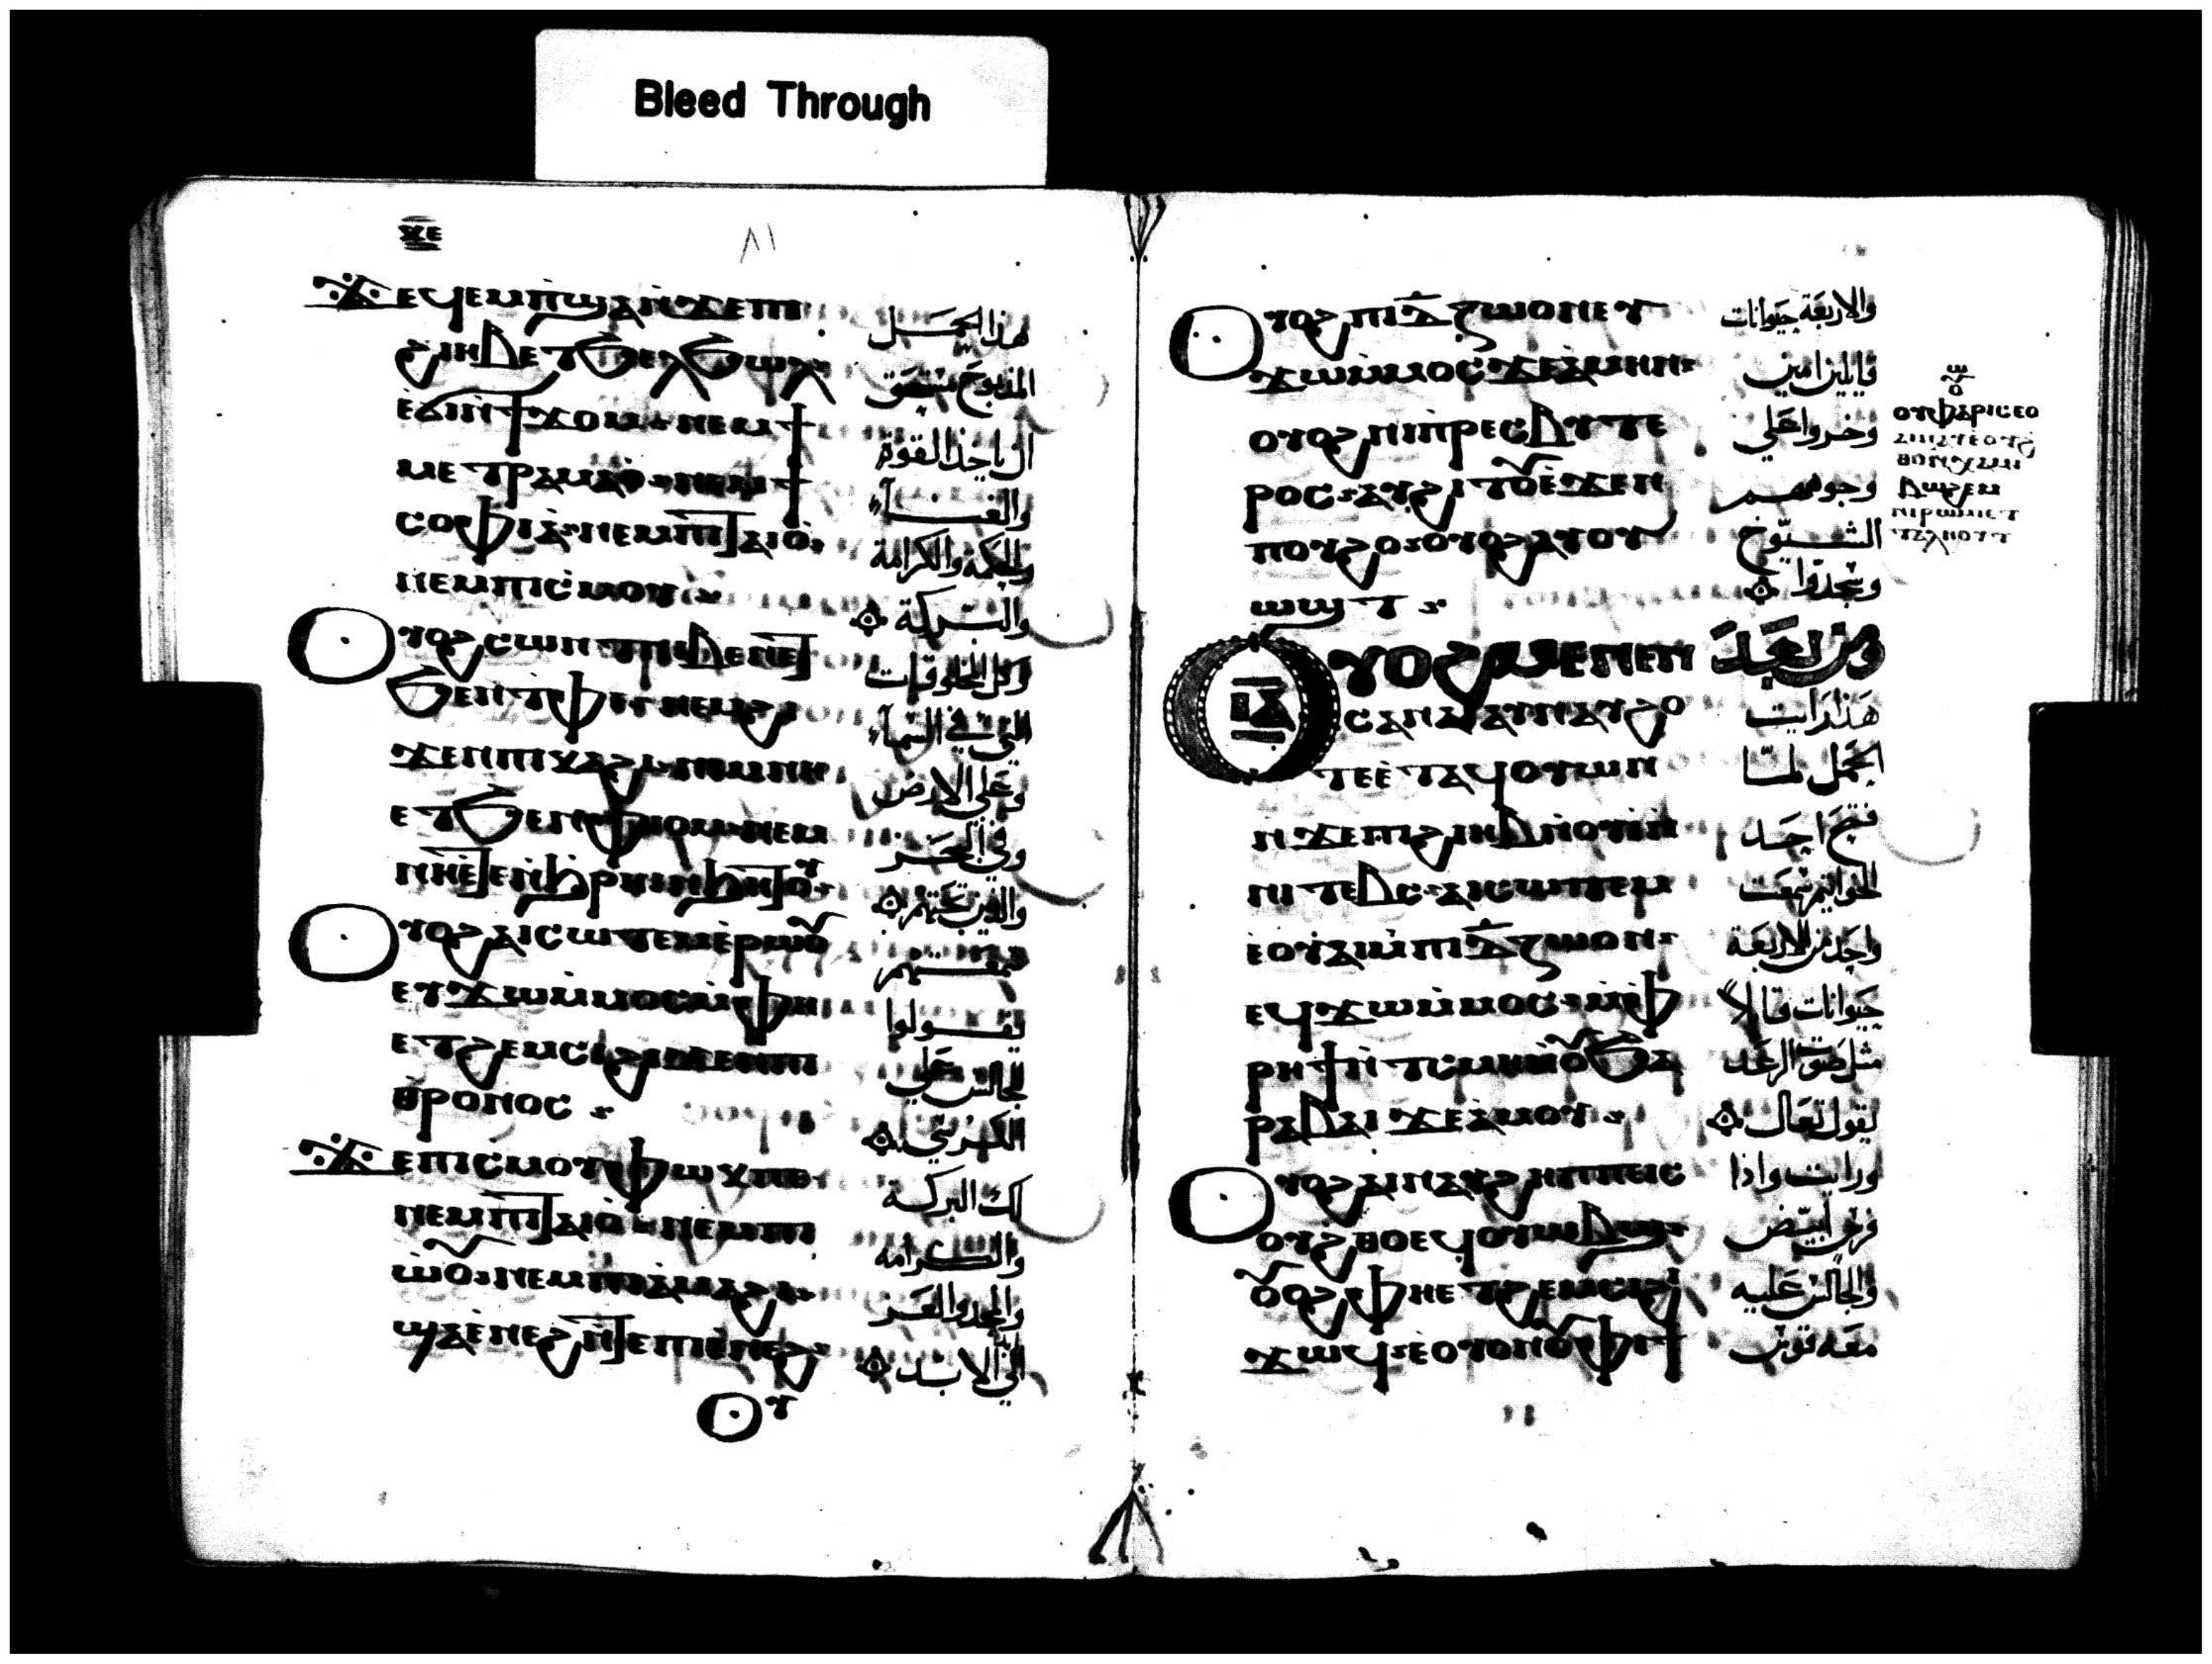 Bleed Through
ⲝⲉ
٨١
ϫⲉϥⲉⲙⲡϣⲁⲛϫⲉⲡⲓ
ϩⲓⲏⲃⲉⲧϧⲉⲗϧⲱⲗ
ⲉϭⲓⲛϯϫⲟⲙ ⲛⲉⲙϯ
ⲙⲉⲧⲣⲁⲙⲁⲟ ⲛⲉⲙϯ
ⲥⲟⲫⲓⲁ ⲛⲉⲙⲡⲓⲧⲁⲓⲟ
ⲛⲉⲙⲡⲓⲥⲙⲟⲩ
ⲟⲩⲟϩⲥⲱⲛⲧⲛⲓⲃⲉⲛⲉⲧ
ϧⲉⲛⲧⲫⲉ ⲛⲉⲙϩⲓ
ϫⲉⲛⲡⲓⲕⲁϩⲓ ⲛⲉⲙⲛⲏ
ⲉⲧϧⲉⲛⲫⲓⲟⲙ ⲛⲉⲙ
ⲛⲏⲉⲧⲉⲛϧⲣⲏⲓⲛϧⲏⲧⲟⲩ
ⲟⲩⲟϩⲁⲓⲥⲱⲧⲉⲙⲉⲣⲱⲟⲩ
ⲉⲩϫⲱⲙⲙⲟⲥⲙⲫⲏ
ⲉⲧϩⲉⲙⲥⲓϩⲓϫⲉⲛⲡⲓ
ⲑⲣⲟⲛⲟⲥ
ϫⲉⲡⲓⲥⲙⲟⲩⲫⲱⲕⲡⲉ
ⲛⲉⲙⲡⲓⲧⲁⲓⲟ ⲛⲉⲙⲡⲓ
ⲱⲟⲩ ⲛⲉⲙⲡⲓⲁⲙⲁϩⲓ
ϣⲁⲉⲛⲉϩⲛⲧⲉⲡⲓⲉⲛⲉϩ
ⲟⲩ
هذا الحمل
المذبوح مستحق
ان ياخذ القوة
والغنآء
والحكمة والكرامة
والبركة
وكل المخلوقات
التي في السمآء
وعلي الارض
وفي البحر
والذين تحتهم
سمعتهم
يقولوا
للجالس علي
الكرسي
لك البركة
والكرامه
والمجد والعز
الي الابد
ⲟⲩⲟϩⲡⲓⲇⲍⲱⲟⲛⲉⲩ
ϫⲱⲙⲙⲟⲥϫⲉⲁⲙⲏⲛ
ⲟⲩⲟϩⲛⲓⲡⲣⲉⲥⲃⲩⲧⲉ
ⲣⲟⲥ ⲁⲩϩⲓⲧⲟⲩⲉϫⲉⲛ
ⲡⲟⲩϩⲟ ⲟⲩⲟϩⲁⲩⲟⲩ
ⲱϣⲧ
ⲟⲩⲟϩⲙⲉⲛⲉⲛ
ⲥⲁⲛⲁⲓⲁⲓⲛⲁⲩϩⲟ
ⲧⲉⲉⲧⲁϥⲟⲩⲱⲛ
ⲛϫⲉⲡⲓϩⲓⲏⲃⲛⲟⲩⲓⲛ
ⲛⲓⲧⲉⲃⲥ ⲁⲓⲥⲱⲧⲉⲙ
ⲉⲟⲩⲁⲓⲙⲡⲓⲇⲍⲱⲟⲛ
ⲉϥϫⲱⲙⲙⲟⲥ ⲙⲫ
ⲣⲏϯⲛⲧⲥⲙⲏⲛⲟⲩϧⲁ
ⲣⲁⲃⲁⲓ ϫⲉⲁⲙⲟⲩ
ⲟⲩⲟϩⲁⲓⲛⲁⲩϩⲏⲡⲡⲉⲓⲥ
ⲟⲩϩⲑⲟⲉϥⲟⲩⲱⲃϣ
ⲟⲩⲟϩⲫⲏⲉⲧϩⲉⲙⲥⲓϩⲓ
ϫⲱϥ ⲉⲟⲩⲟⲛⲟⲩⲫⲓϯ
والاربعة حيوانات
قايلين امين
وخروا علي
وجوههم
الشيوخ
وسجدوا
ومن بعد
هذا رايت
الحمل لمّا
فتح احد
الخواتم سمعت
واحد من الاربعة
حيوانات قايلاً
مثل صوت الرعد
يقول تعال
ورايت واذا
فرس ابيض
والجالس عليه
معه قوس